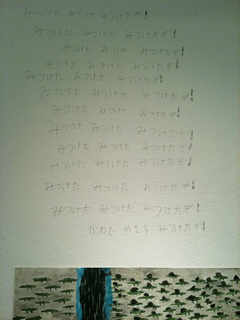 みつけた みつけた みつけたぞ!
みつけた みつけた みつけたぞ!
みつけた みつけた みつけたぞ!
みつけた みつけた みつけたぞ!
みつけた みつけた みつけたぞ!
みつけた みつけた みつけたぞ!
みつけた みつけた みつけたぞ!
みつけた みつけた みつけたぞ!
みつけた みつけた みつけたぞ!
みつけた みつけた みつけたぞ!
みつけた みつけた みつけたぞ!
みつけた みつけた みつけたぞ!
みつけたぞ!